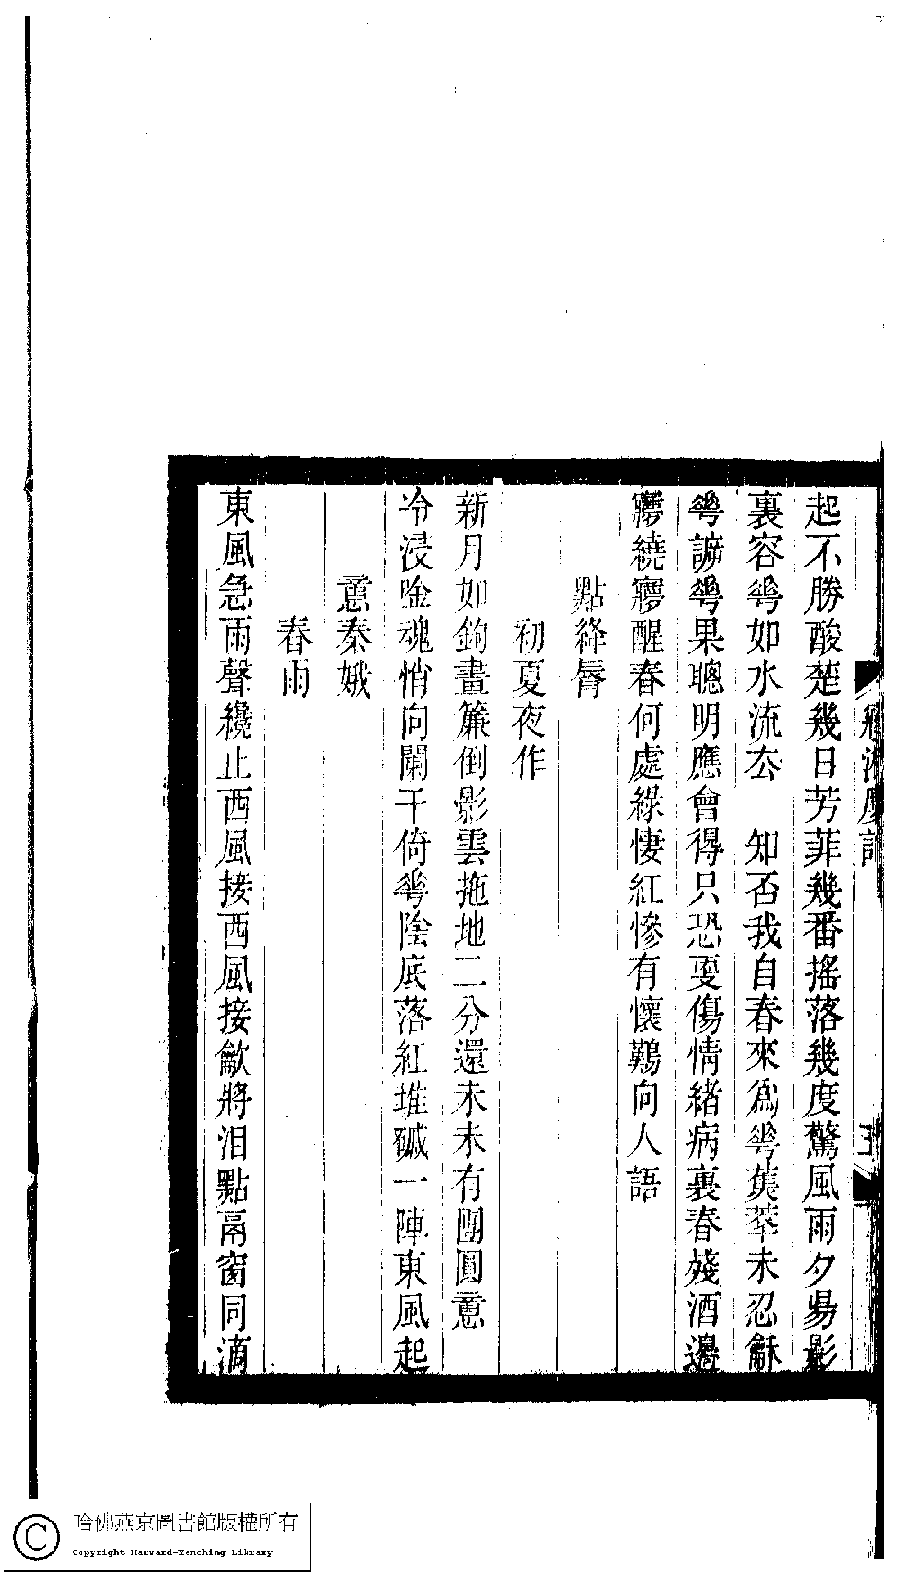 起不勝酸楚幾日芳菲幾番搖落幾度驚風雨夕陽影
裏容華如水流厺　知否我自春來爲華集莘未忍龢
華謔華果聰明應會得只恐㪅傷情緒病裏春殘酒邊
㝱繞㝱醒春何處綠悽紅慘有懷鷄向人語
點絳脣
初夏夜作
新月如鉤畫簾倒影雲拖地二分還未未有團圓意
冷浸唫魂悄向闌干倚華陰底落紅堆磩一陣東風起
憶秦娥
春雨
東風急雨聲纔止西風接西風接歊將泪點鬲窗同滴
哈佛燕京圖書館版權所有
Copyright Harvard-Yenching Library